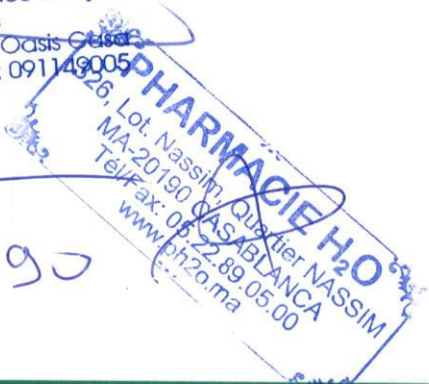 Oasis Casa
: 091149005
PHARMACIE H₂O
326, Lot. Nassim, Quartier NASSIM
MA-20190 CASABLANCA
Tél/Fax: 05.22.89.05.00
www.ph2o.ma
90